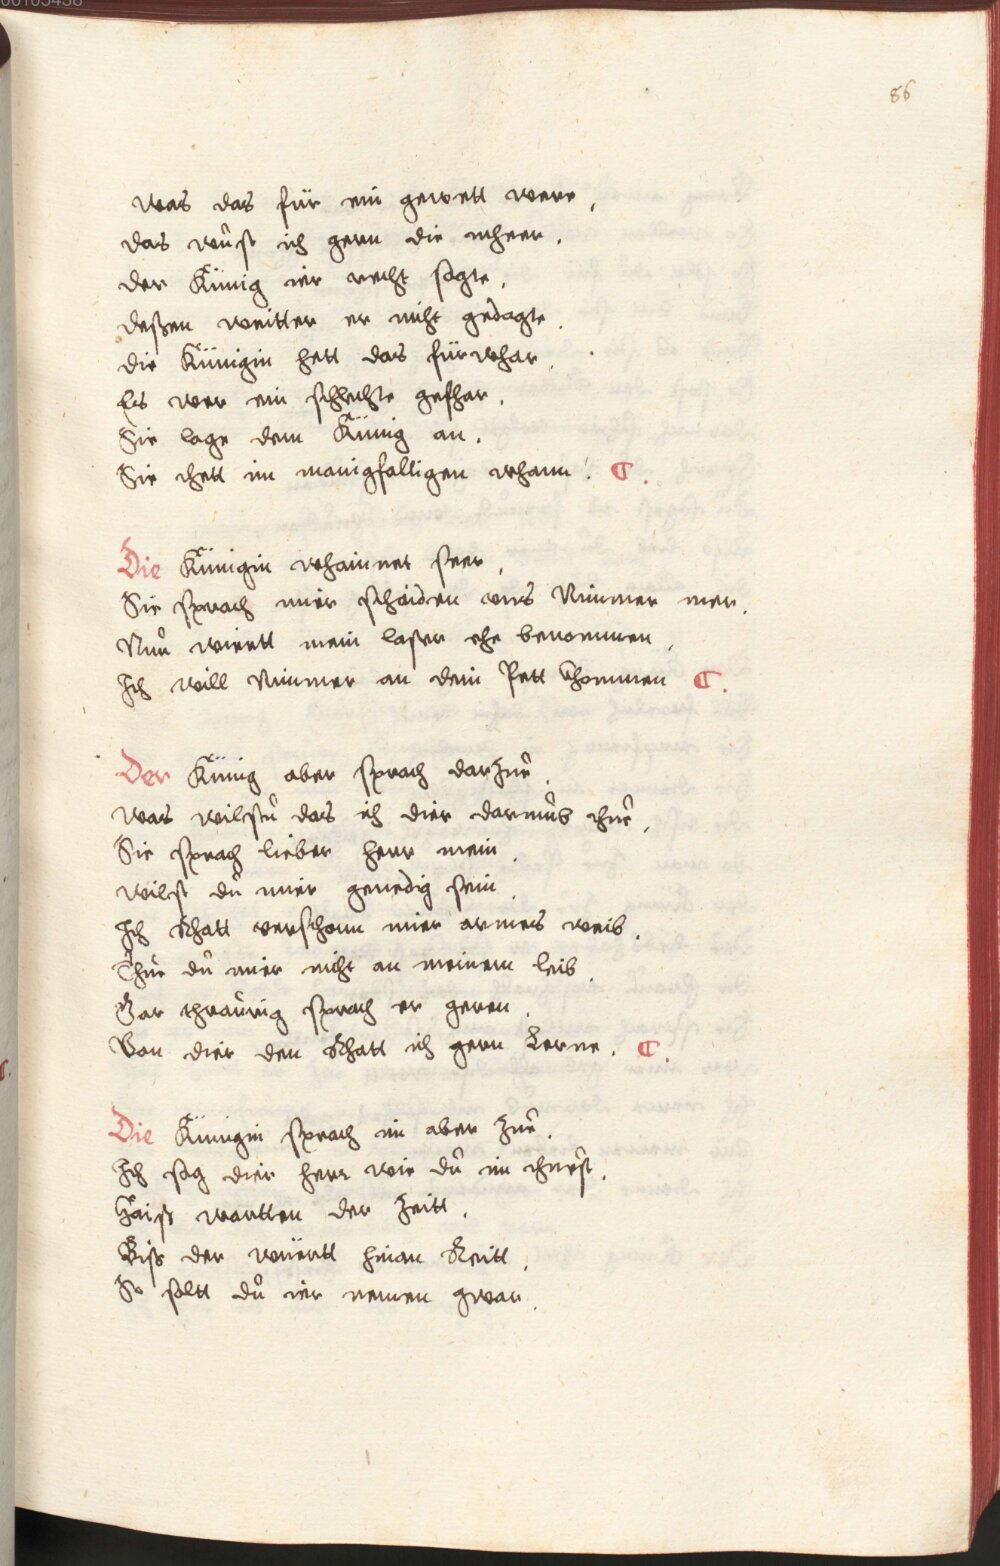 86
was das für ein gewett were,
das wůst ich gern die mheer,
der Künig ier recht sagte,
deßen weitter er nicht gedagte.
die Künigin hett das fürwhar,
Es wer ein schlechte gefhar,
Sie lage dem Künig an,
Sie thett im manigfaltigen whann. ¶.
Die Künigin whainnet seer,
Sie sprach mier schaiden uns Nimmer mer,
Nůn wiertt mein laster ehe benommen,
Ich will Nimmer an dein Pett Khommen ¶.
Der Künig aber sprach darzue,
was wilstů das ich dier darumb thue,
Sie sprach lieber herr mein,
wilst dů mier genedig sein,
Ich Rhatt verschonn mier armes weib,
Thue dů mier nicht an meinem leib,
Gar thraůrig sprach er geren,
Von dier den Rhatt ich gern Lerne, ¶.
Die Künigin sprach im aber zue,
Ich sag dier herr wie dů im thuest,
Haiß wartten der zeitt,
Biß der wüertt hinan Reitt,
So soltt dů ier nemen gwar,